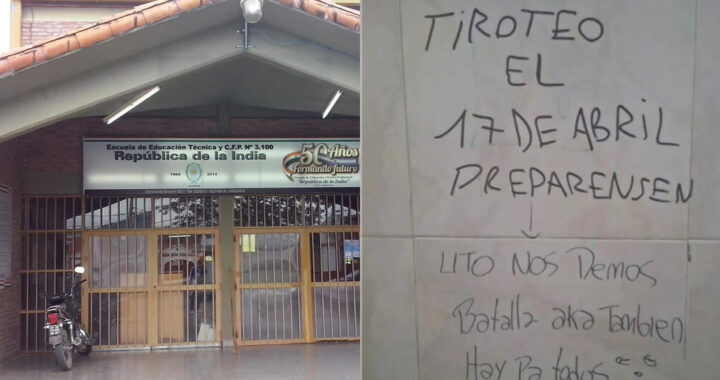 Escuela de Educación Técnica y C.F.P. Nº 3.100
República de la India
1964 2014
50 Años
Formando futuro
"República de la India"
TiROTEO
EL
17 DE ABRIL
PREPARENSEN
LITO NOS Demos
Batalla aka Tambien
Hay Pa todos